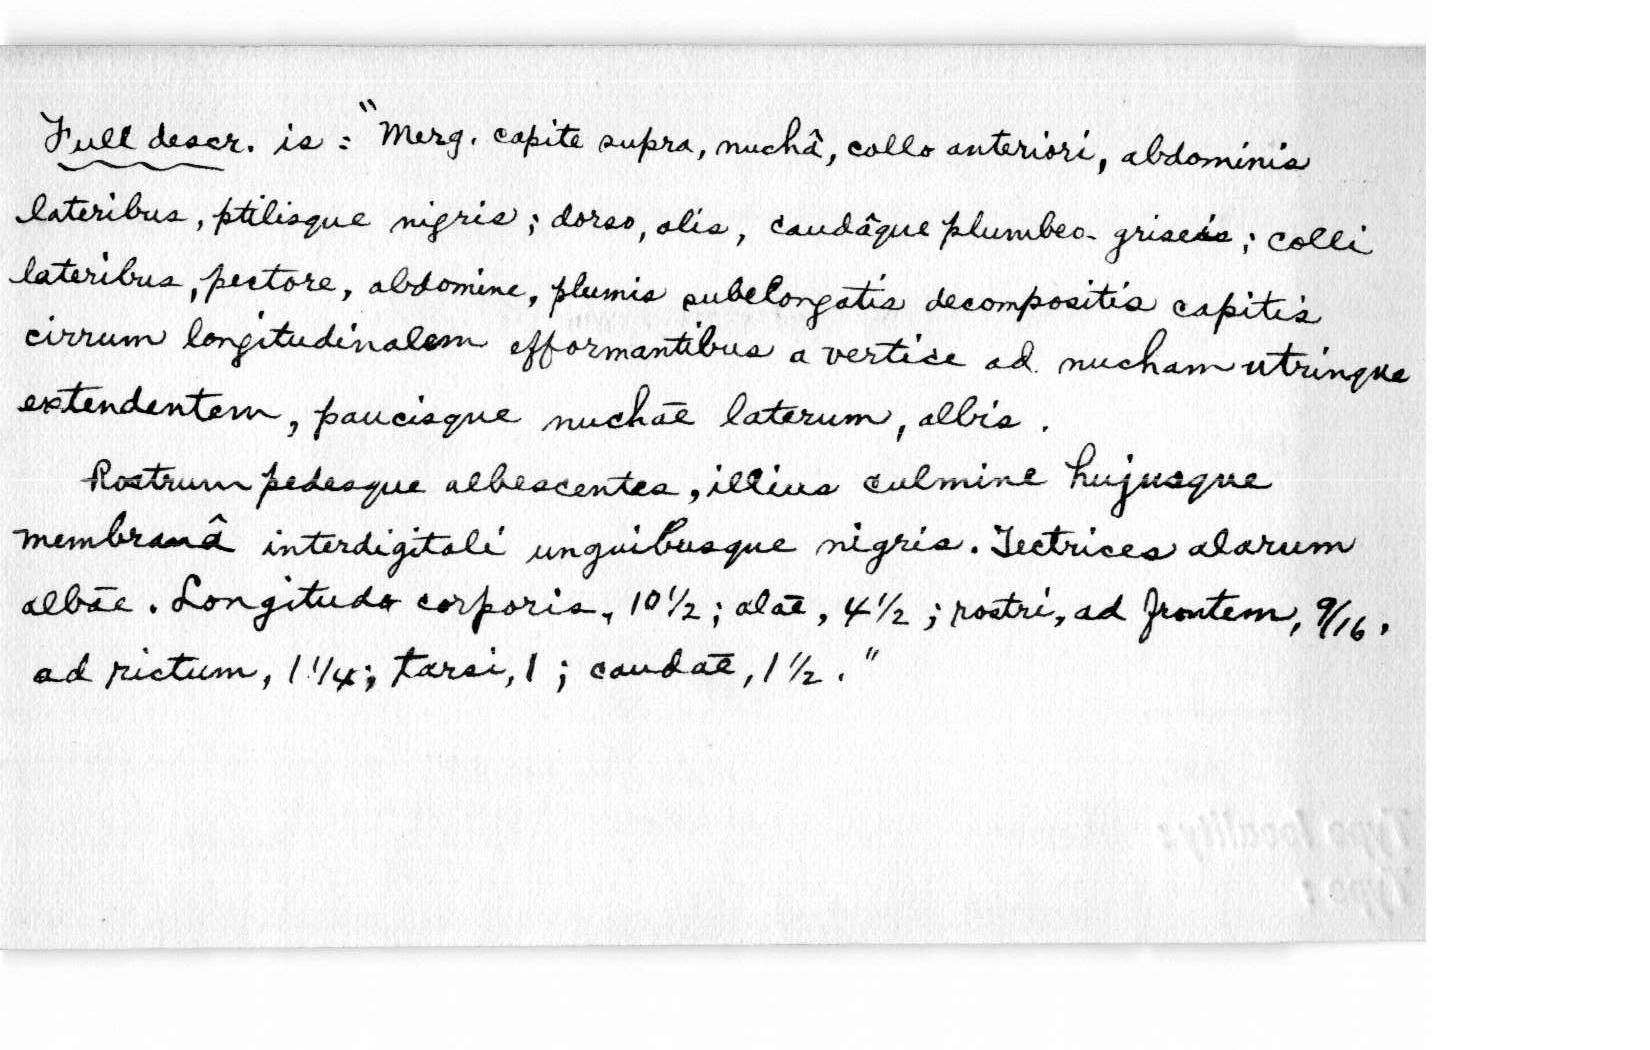 Full descr. is : "Merg. capite supra, nuchâ, collo anteriori, abdominis
lateribus, ptilisque nigris ; dorso, alis, caudâque plumbeo-griseis ; colli
lateribus, pectore, abdomine, plumis subelongatis decompositis capitis
cirrum longitudinalem efformantibus a vertice ad nucham utrinque
extendentem, paucisque nuchāe laterum, albis.
Rostrum pedesque albescentes, illius culmine hujusque
membranâ interdigitali unguibusque nigris. Tectrices alarum
albāe. Longitudo corporis, 10 1/2 ; alāe, 4 1/2 ; rostri, ad frontem, 9/16,
ad rictum, 1 1/4 ; tarsi, 1 ; caudāe, 1 1/2."
Type locality :
Type :